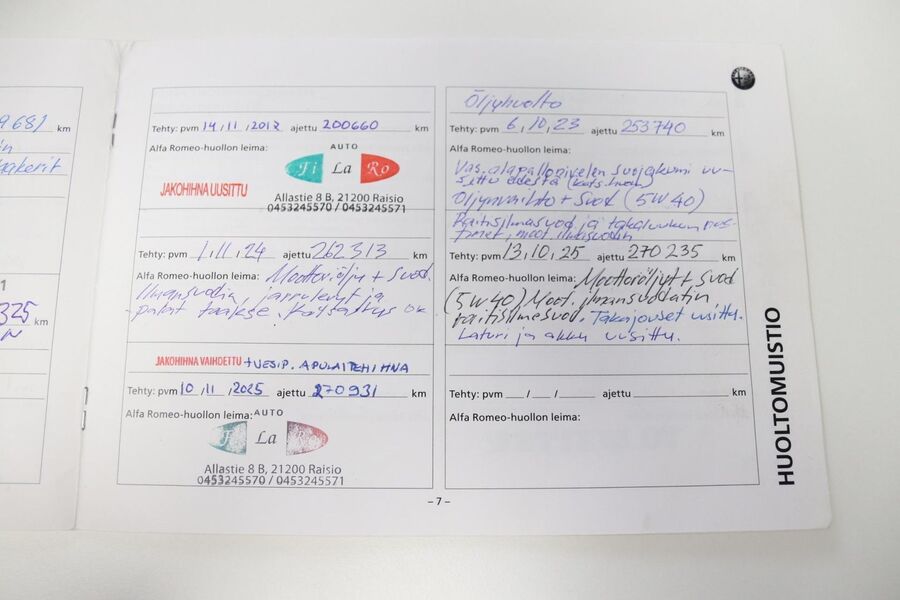 9681 km
akerit
1
325 km
Tehty: pvm 14 / 11 / 2017 ajettu 200660 km
Alfa Romeo-huollon leima:
AUTO
Fi La Ro
JAKOHIHNA UUSITTU
Allastie 8 B, 21200 Raisio
0453245570 / 0453245571
Tehty: pvm 1 / 11 / 24 ajettu 262313 km
Alfa Romeo-huollon leima: Moottoriöljy + Suod.
Ilmansuodatin, jarrulevyt ja
palat taakse. Katsastus ok
JAKOHIHNA VAIHDETTU + VESIP. APULAITEHIHNA
Tehty: pvm 10 / 11 / 2025 ajettu 270931 km
Alfa Romeo-huollon leima:
AUTO
Fi La Ro
Allastie 8 B, 21200 Raisio
0453245570 / 0453245571
Öljyhuolto
Tehty: pvm 6 / 10 / 23 ajettu 253740 km
Alfa Romeo-huollon leima:
Vas. alapallonivelen suojakumi uu-
sittu edestä (kats.)
Öljynvaihto + Suod (5W40)
Raitisilmasuod ja takaluukun
moot. ilmansuodatin
Tehty: pvm 13 / 10 / 25 ajettu 270235 km
Alfa Romeo-huollon leima: Moottoröljyt + Suod
(5W40) Moot. ilmansuodatin
raitisilmasuod. Takajouset uusittu.
Laturi ja akku uusittu.
Tehty: pvm / / ajettu km
Alfa Romeo-huollon leima:
HUOLTOMUISTIO
– 7 –